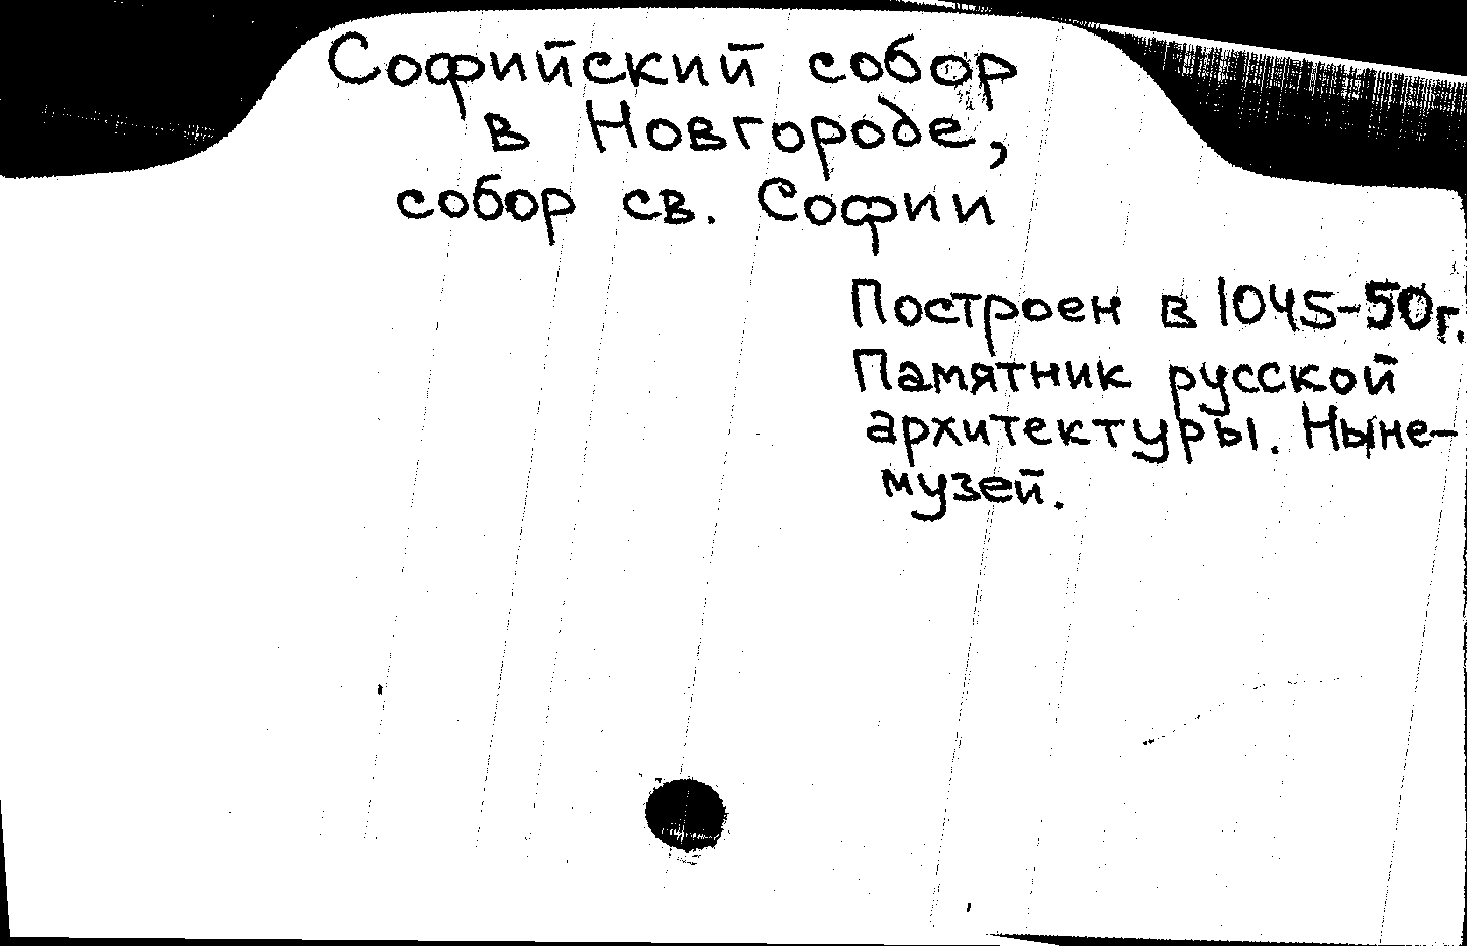 Софийский собор
в Новгороде,
собор св. Софии
Построен в 1045-50г.
Памятник русской
архитектуры. Ныне-
музей.